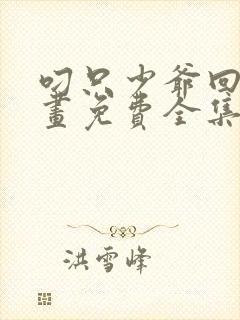 叼只少爷回
畫免費全集
洪雪峰